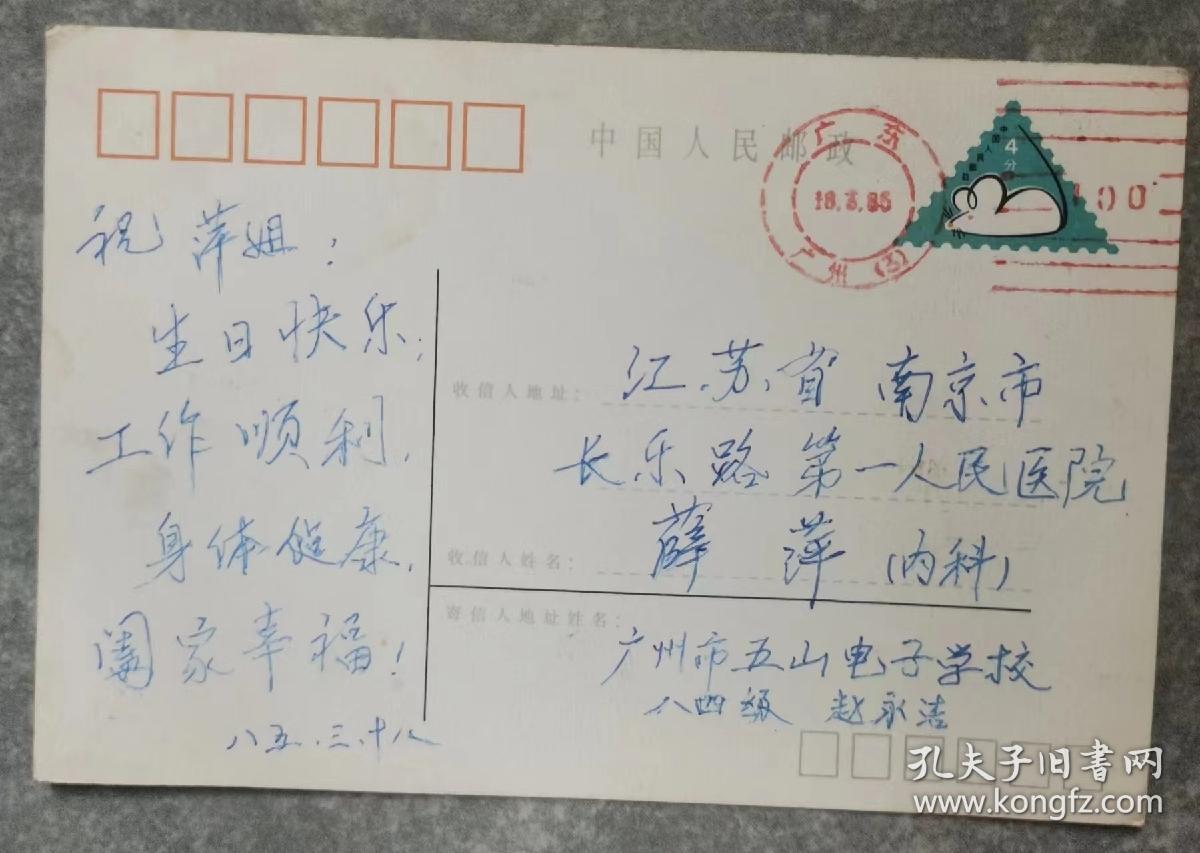 中国人民邮政
广东
18.3.85
广州（3）
100
中国人民邮政
4
分
祝萍姐：
生日快乐；
工作顺利，
身体健康，
阖家幸福！
八五.三.十八
收信人地址：
江苏省南京市
长乐路第一人民医院
收信人姓名：
薛萍（内科）
寄信人地址姓名：
广州市五山电子学校
八四级 赵永洁
孔夫子旧书网
www.kongfz.com